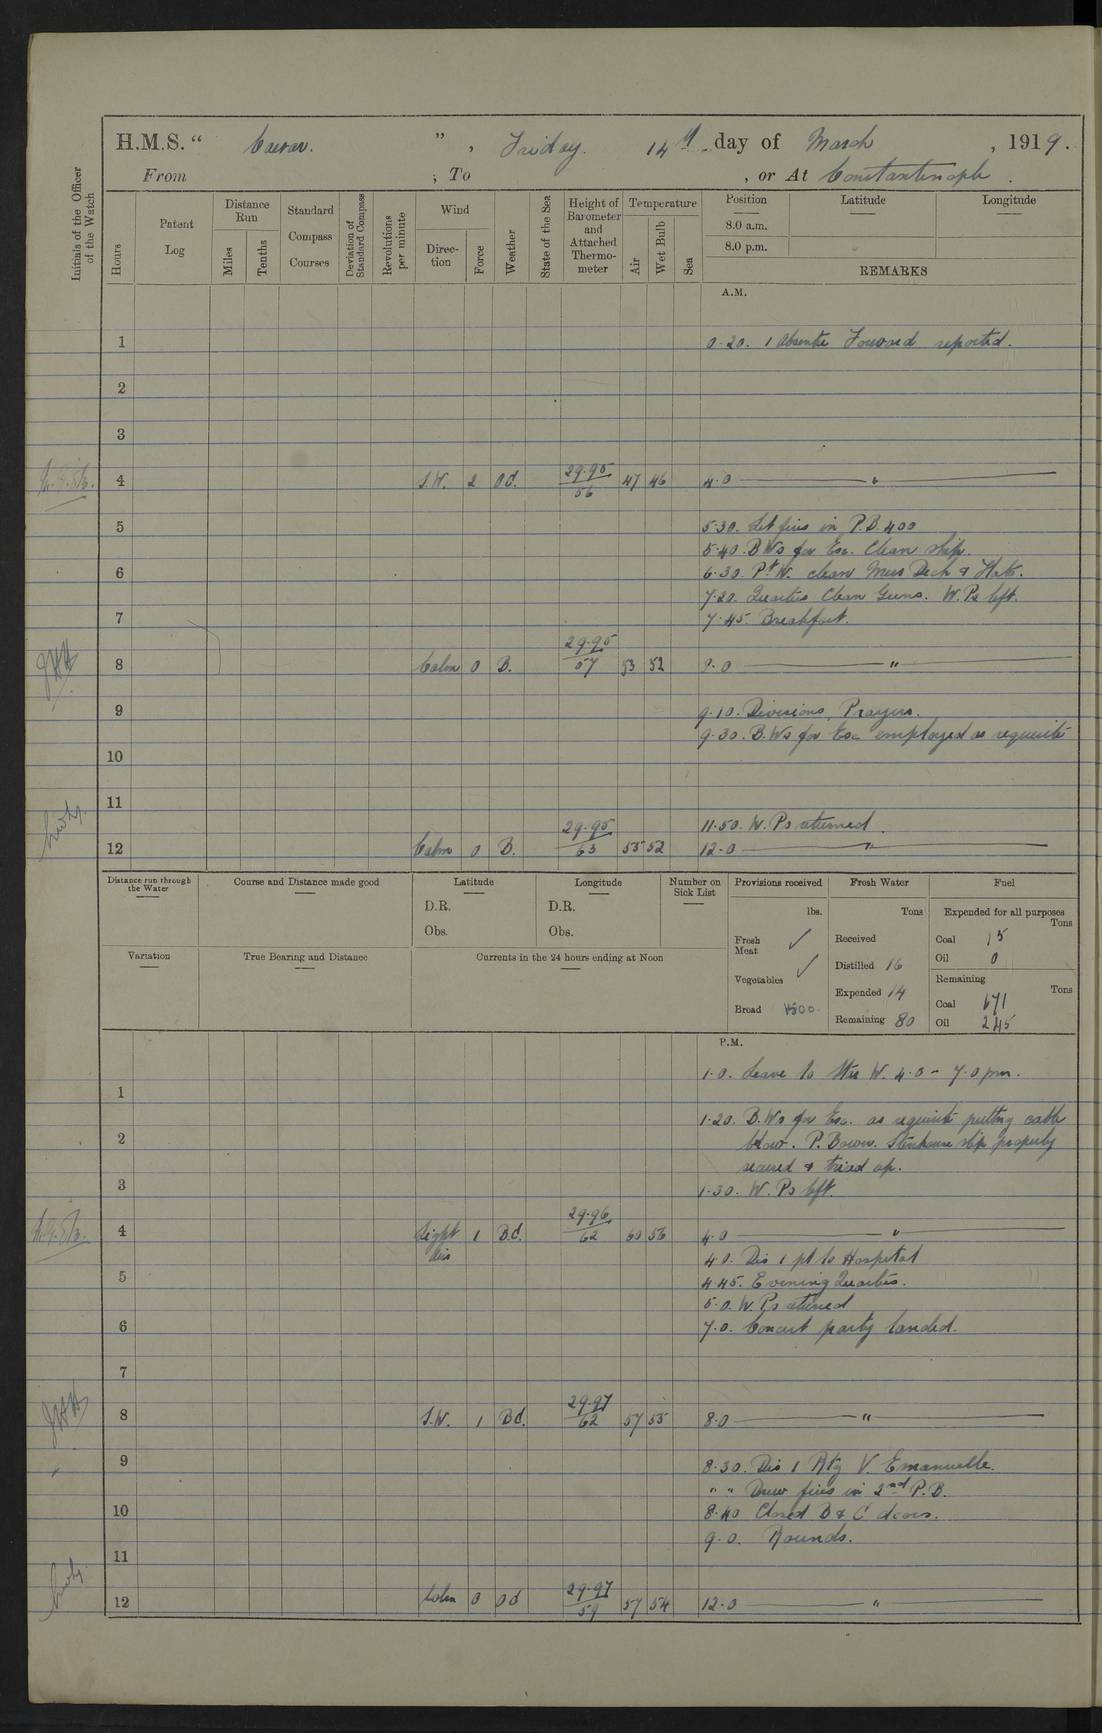 H.M.S. " Caesar. " , Friday. 14th day of March , 1919.
From ; To , or At Constantinople .
Initials of the Officer of the Watch
Hours
Patent Log
Distance Run
Miles
Tenths
Standard Compass Courses
Deviation of Standard Compass
Revolutions per minute
Wind
Direction
Force
Weather
State of the Sea
Height of Barometer and Attached Thermometer
Temperature
Air
Wet Bulb
Sea
Position Latitude Longitude
8.0 a.m.
8.0 p.m.
REMARKS
A.M.
1 0.20. 1 Absentee Forward reported.
2
3
4 S.W. 2 Od. 29.95/56 47 46 4.0 "
5 5.30. Lit fires in P.B. 400
5.40. B Ws for Exc. Clean ship.
6 6.30. Pt W. clean Mess Deck & Flats.
7.20. Quarters Clean Guns. W. Ps left.
7 7.45. Breakfast.
8 Calm 0 B. 29.95/57 53 52 "
9 9.10. Divisions, Prayers.
9.30. B.Ws for Exc employed as requisite
10
11
11.50. W. Ps returned.
12 Calm 0 B. 29.95/63 55 52 12.0 "
Distance run through the Water
Course and Distance made good
Latitude
D.R.
Obs.
Longitude
D.R.
Obs.
Number on Sick List
Variation
True Bearing and Distance
Currents in the 24 hours ending at Noon
Provisions received
lbs.
Fresh Meat ✓
Vegetables ✓
Bread 1500.
Fresh Water
Tons
Received
Distilled 16
Expended 14
Remaining 80
Fuel
Expended for all purposes
Tons
Coal 15
Oil 0
Remaining
Tons
Coal 671
Oil 245
P.M.
1.0. Leave to W. 4.0 - 7.0 pm.
1
1.20. B.Ws for Exc. as requisite putting cable
2 below. P. Bower. ship properly
secured & triced up.
3 1.30. W. Ps left.
4 Light airs 1 B.d. 29.96/62 60 56 4.0 "
4.0. Dis 1 pt to Hospital
5 4.45. Evening Quarters.
5.0. W. Ps returned
6 7.0. Concert party landed.
7
8 S.W. 1 Bd. 29.97/62 57 55 8.0 "
9 8.30. Dis 1 Rtg V. Emanuelle.
" " Drew fires in 2nd P.B.
10 8.40 Closed B & C doors.
9.0. Rounds.
11
12 Calm 0 Od 29.97/59 57 54 12.0 "